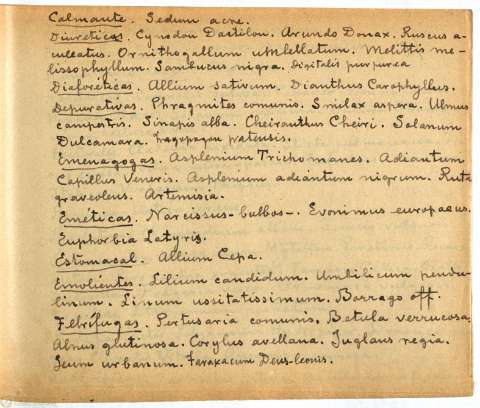 Calmante. Sedum acre.
Diuréticas. Cynodon Dactilon. Arundo Donax. Ruscus a-
culeatus. Ornithogallum umbellatum. Melittis me-
lissophyllum. Sambucus nigra. Digitalis purpurea
Diaforéticas. Allium sativum. Dianthus Carophyllus.
Depurativas. Phragmites comunis. Smilax aspera. Ulmus
campestris. Sinapis alba. Cheiranthus Cheiri. Solanum
Dulcamara. Tragopogon patensis.
Emenagogas. Asplenium Trichomanes. Adiantum
Capillus Veneris. Asplenium adiantum nigrum. Ruta
graveolens. Artemisia.
Eméticas. Narcissus-bulbos-. Evonimus europaeus.
Euphorbia Latyris.
Estomacal. Allium Cepa.
Emolientes. Lilium candidum. Umbilicum pendu-
linum. Linum ussitatissimum. Borrago off.
Febrífugas. Pertusaria comunis. Betula verrucosa.
Alnus glutinosa. Corylus avellana. Juglans regia.
Geum urbanum. Taraxacum Deus-leonis.